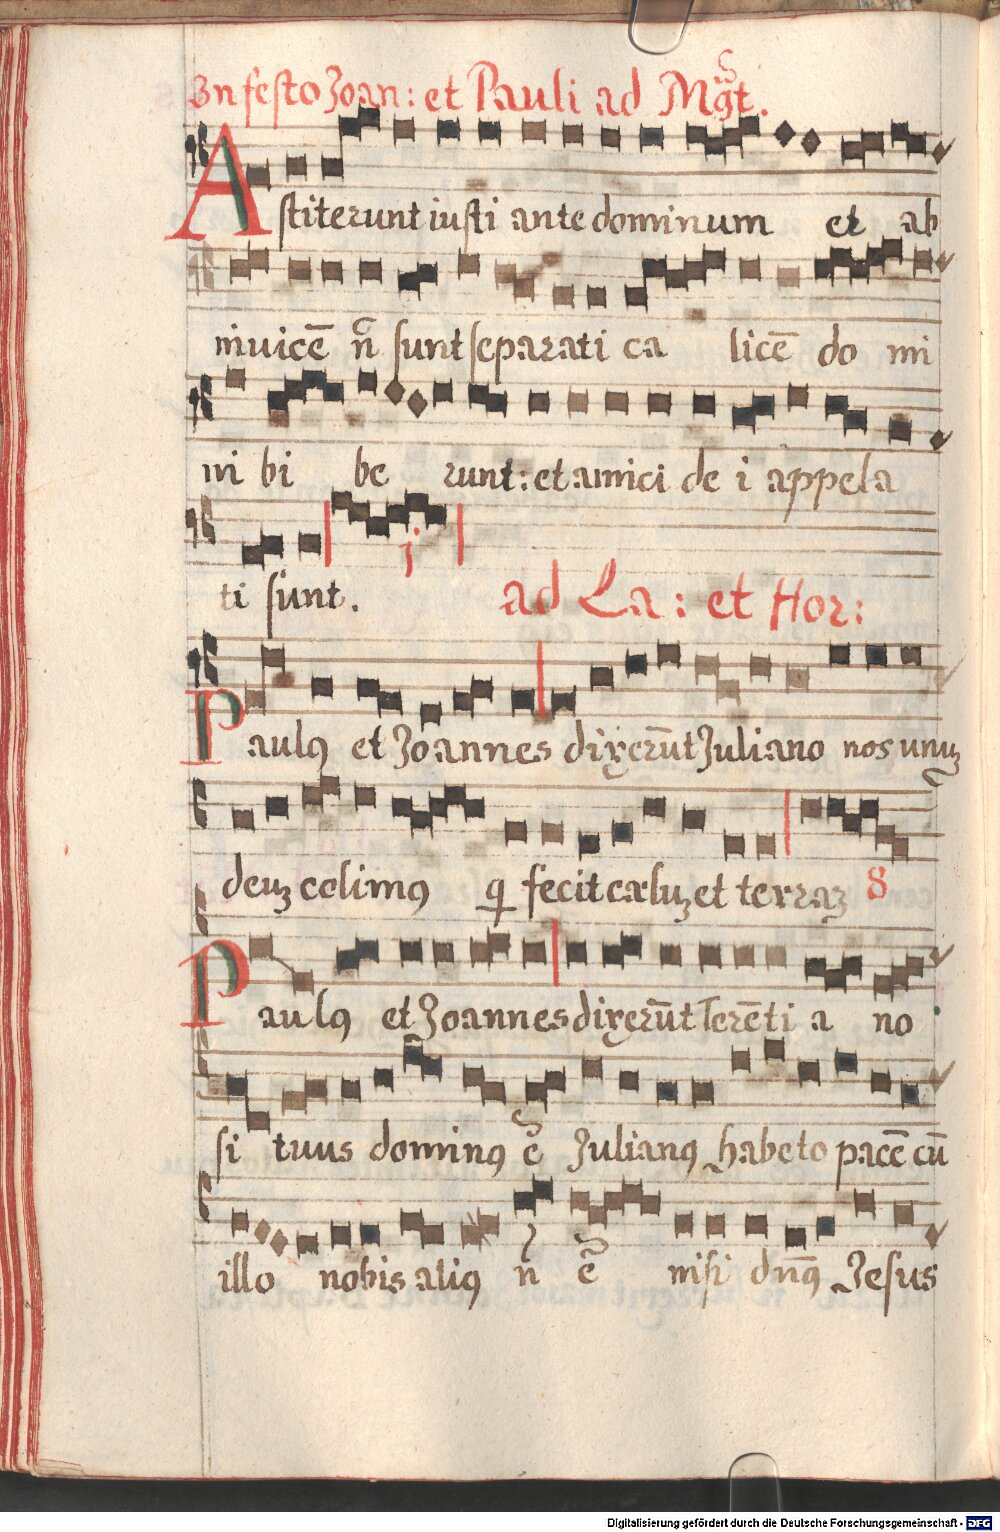 In festo Joan: et Pauli ad Mgt.
Astiterunt iusti ante dominum et ab
invicē ñ sunt separati ca licē do mi
ni bi be runt: et amici de i appela
ti sunt. j
ad La: et Hor:
Paulꝯ et Joannes dixerūt Juliano nos unuȝ
deuȝ colimꝯ q fecit cæluȝ et terraȝ 8
Paulꝯ et Joannes dixerūt Terēti a no
si tuus dominꝯ ē Julianꝯ habeto pacē cū
illo nobis aliꝯ ñ ē nisi dn̄ꝯ Jesus
Digitalisierung gefördert durch die Deutsche Forschungsgemeinschaft - DFG